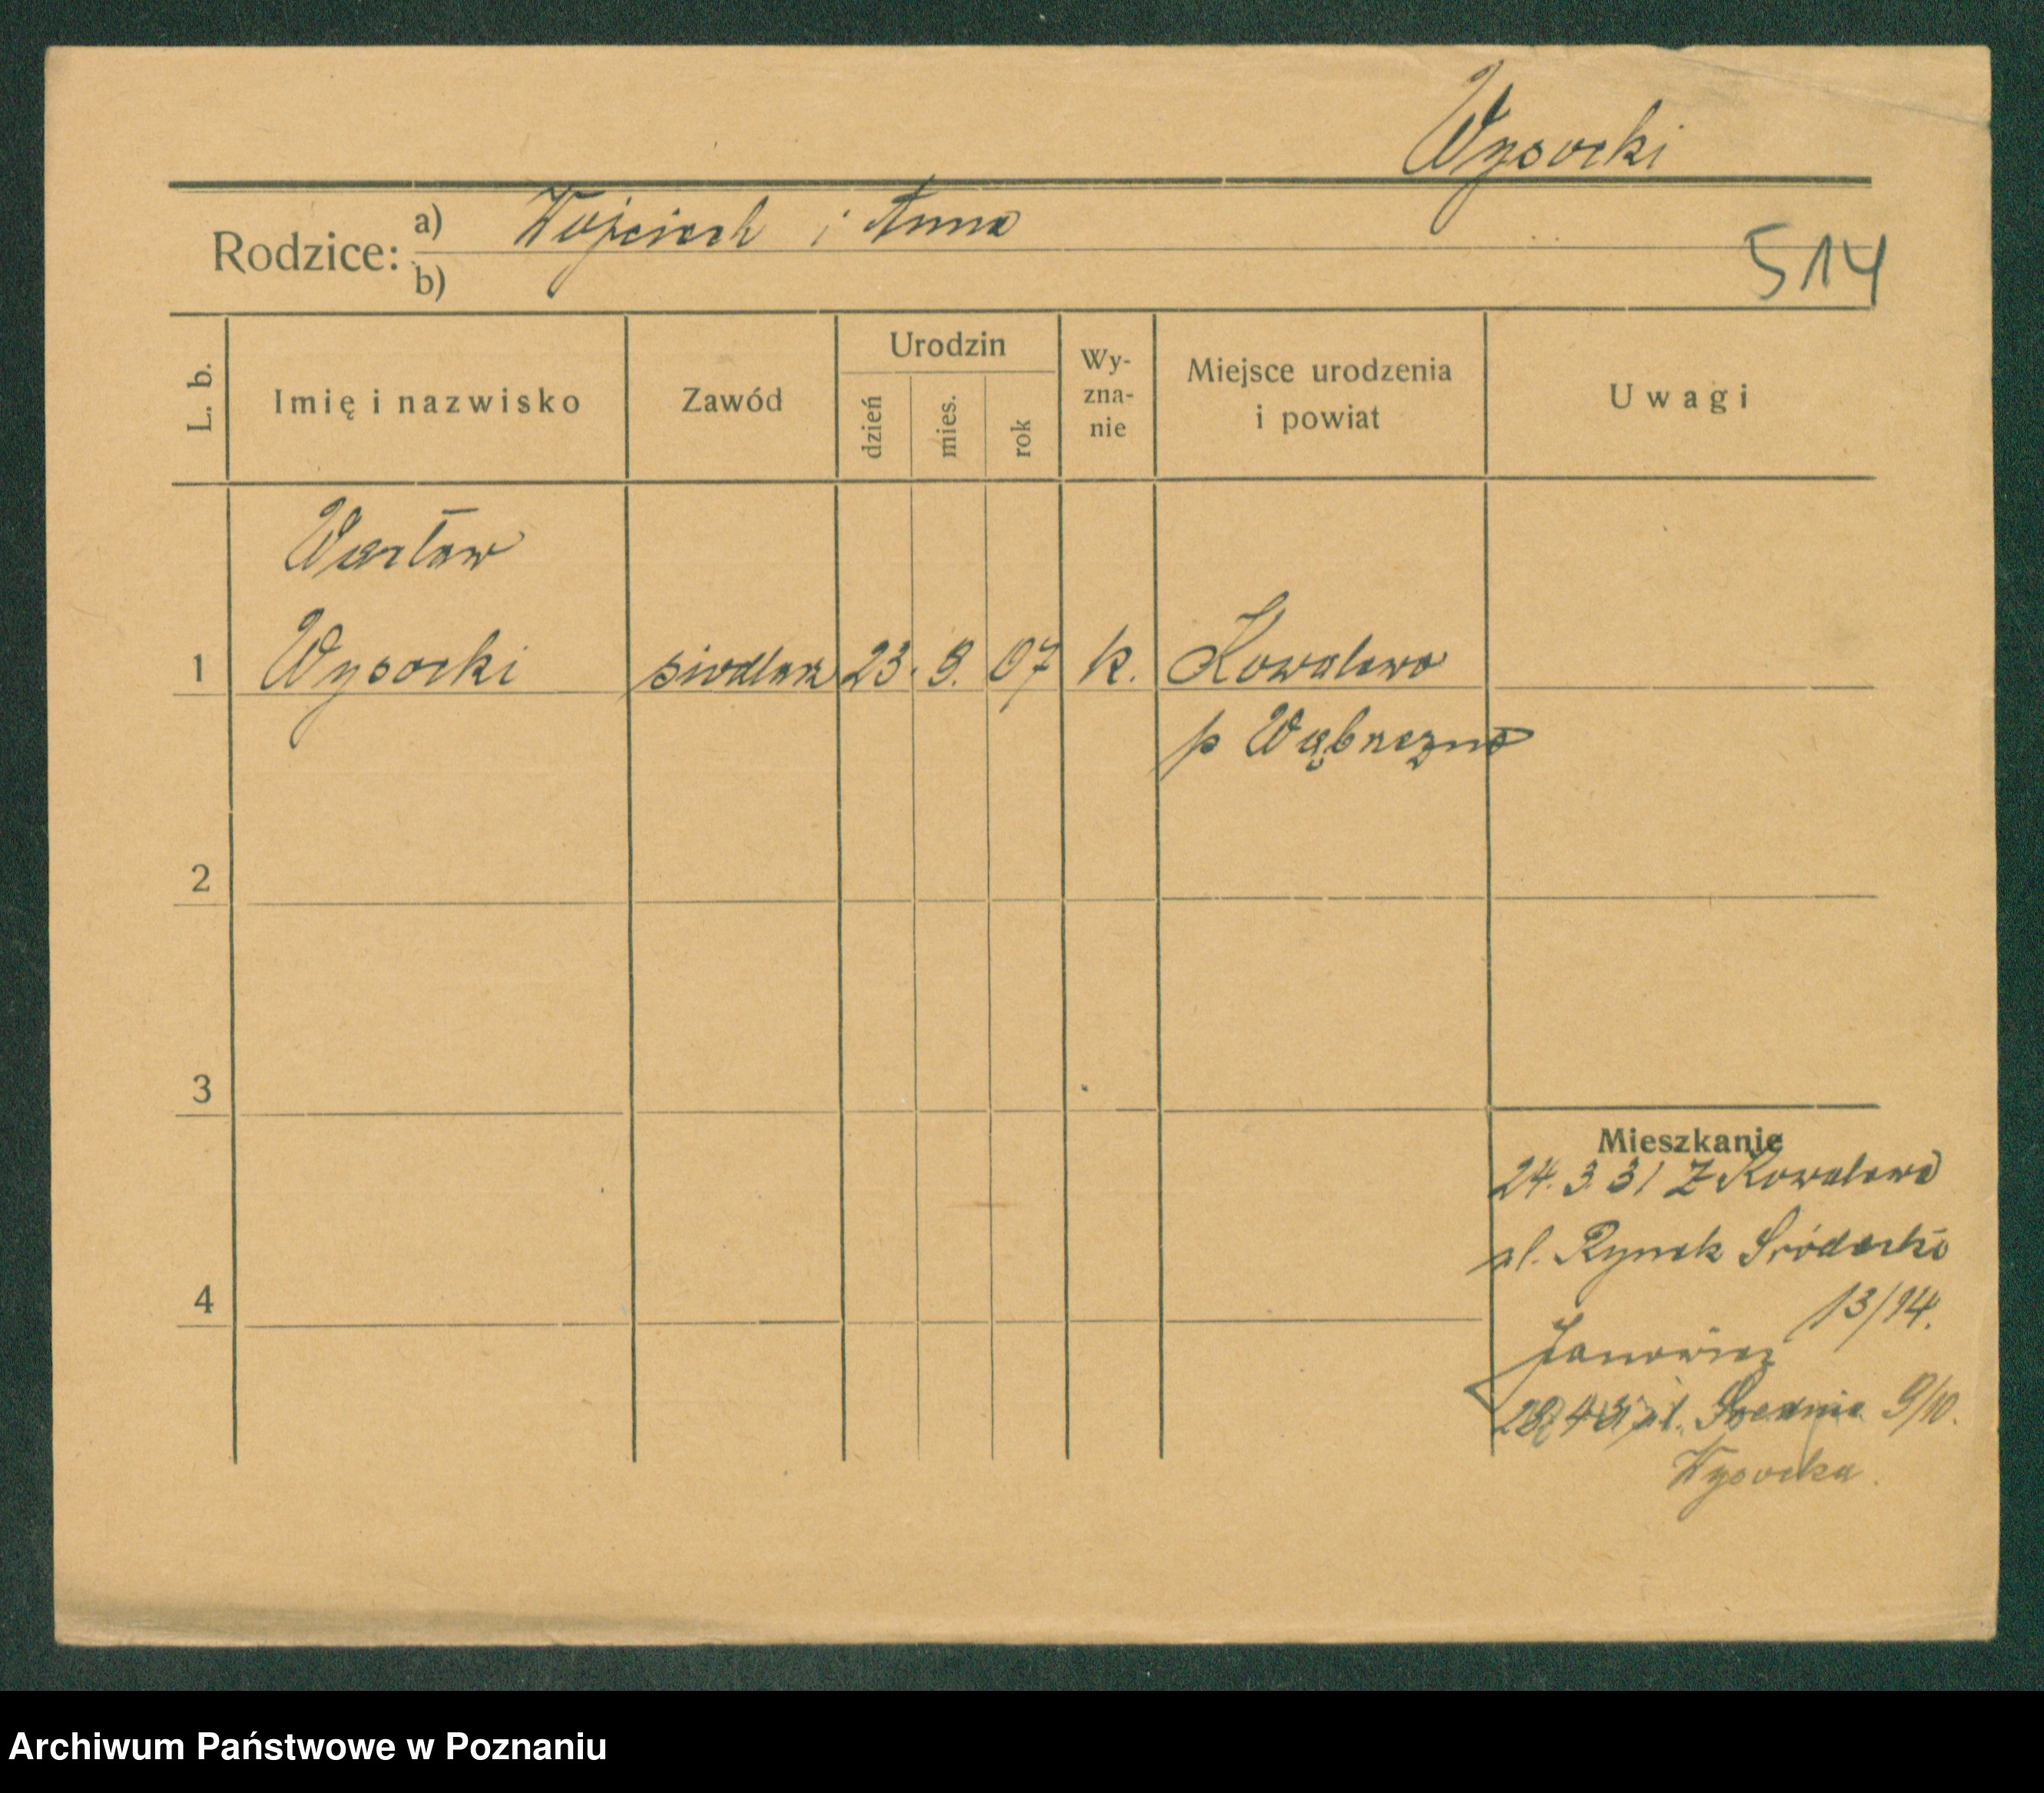 Wysocki
Rodzice: a) Wojciech i Anna
b)
514
L. b.
Imię i nazwisko
Zawód
Urodzin
dzień
mies.
rok
Wy-
zna-
nie
Miejsce urodzenia
i powiat
Uwagi
Wacław
1 Wysocki siodlarz 23. 9. 07 k. Kowalewo
p Wąbrzezno
2
3
4
Mieszkanie
24. 3. 31 Z Kowalewa
ul. Rynek Śródecki
13/14.
Janowicz
ul. Średnia 9/10.
Wysocka.
Archiwum Państwowe w Poznaniu